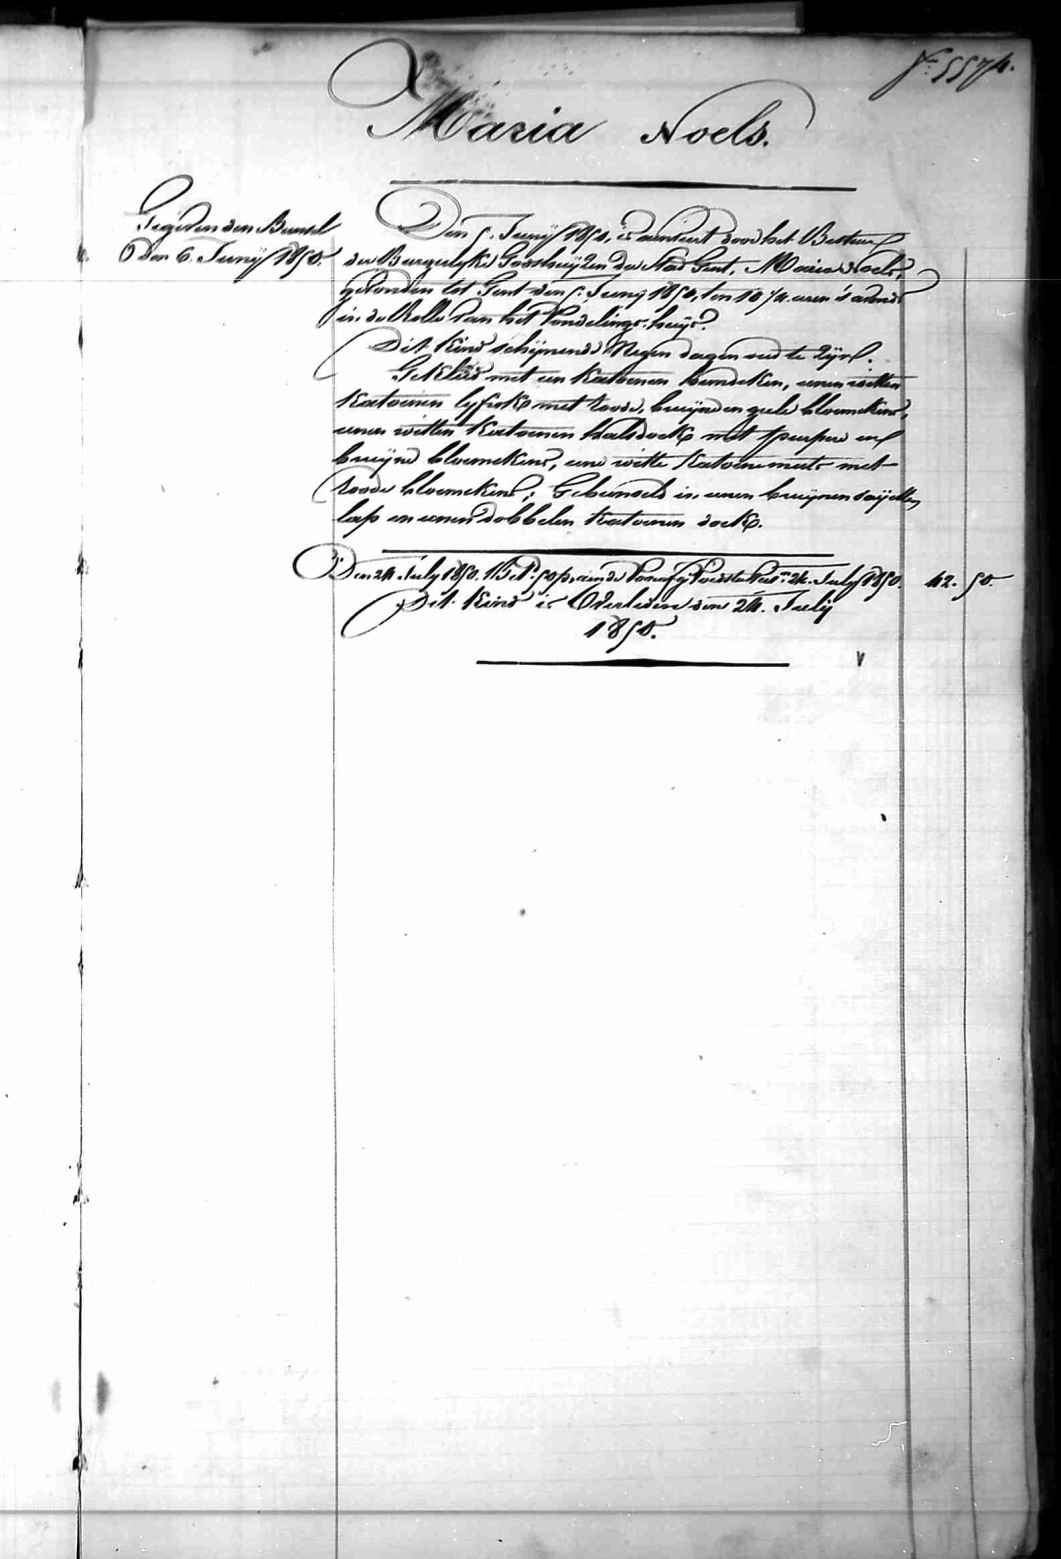 f.º 5574.
Maria Noels.
Gegeven den Bunsel
den 6. Junij 1850.
Den 5. Junij 1850, is aenveert door het Bestuer
der Burgerlyke Godshuijzen der Stad Gent, Maria Noels,
gevonden tot Gent den 5. Junij 1850, ten 10 1/4 uren 's avonds
in de Rolle van het Vondelings-huijs.
Dit Kind schijnende Negen dagen oud te zijn.
Gekleed met een katoenen hemdeken, eenen witten
katoenen lyfrok met roode, bruijn en gele bloemekens,
eenen witten katoenen halsdoek met purper en
bruijne bloemekens, eene witte katoene muts met
roode bloemekens; Gebunseld in eenen bruijnen saijetten
lap en eenen dobbelen katoenen doek.
Den 24 July 1850. Bet. 50 24. July 1850. 42. 50.
Dit Kind is Overleden den 24. Julij
1850.
V